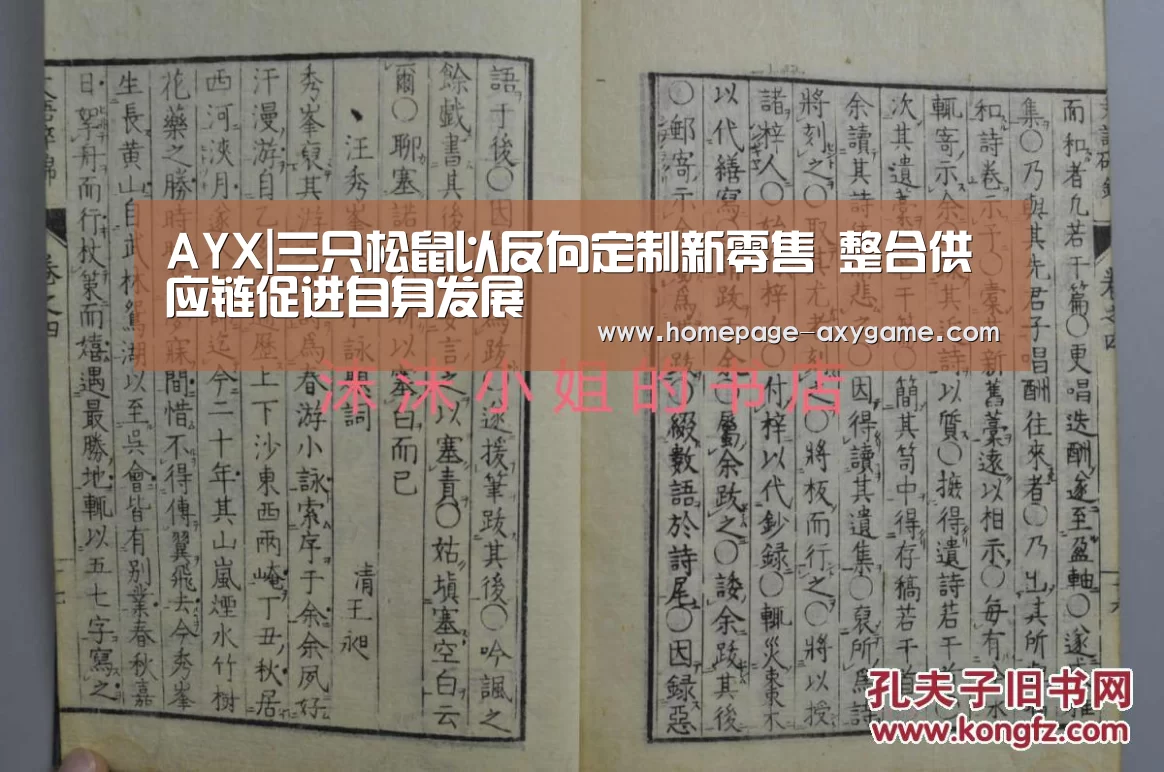 AYX|三只松鼠以反向定制新零售 整合供
应链促进自身发展
www.homepage-axygame.com
沫沫小姐的书店
而和者九若干篇○更唱迭酬○遂至盈軸○遂
集○乃與其先君子唱酬往來者○乃出其所
和詩卷示
輒寄示余
次其遺藁
余讀其詩
將刻之○
諸梓人○
以代繕寫
○郵寄示
新舊藁遠以相示○每有
詩以質○撫得遺詩若干
○簡其笥中得存稿若干
○因得讀其遺集○裒所爲詩
○將板而行之○將以授
○付梓以代鈔録○輒災棗木
○屬余跋之○諉余跋其後
○綴數語於詩尾○因録惡
語于後○因
遂援筆跋其後○吟諷之
餘戯書其後
以塞責○姑塡塞空白云
爾○聊塞
白而已
汪秀峯
詠
詞
清王昶
秀峯裒其游
詩爲春游小詠索序于余余夙好
汗漫游自乙
歷上下沙東西兩崦丁丑秋居
西河浹月遂
今二十年其山嵐煙水竹樹
花藥之勝時
寐間惜不得傳翼飛去今秀峯
生長黄山自武林鴛湖以至吳會皆有别業春秋嘉
日拏舟而行杖策而嬉遇最勝地輒以五七字寫之
卷之四
孔夫子旧书网
www.kongfz.com